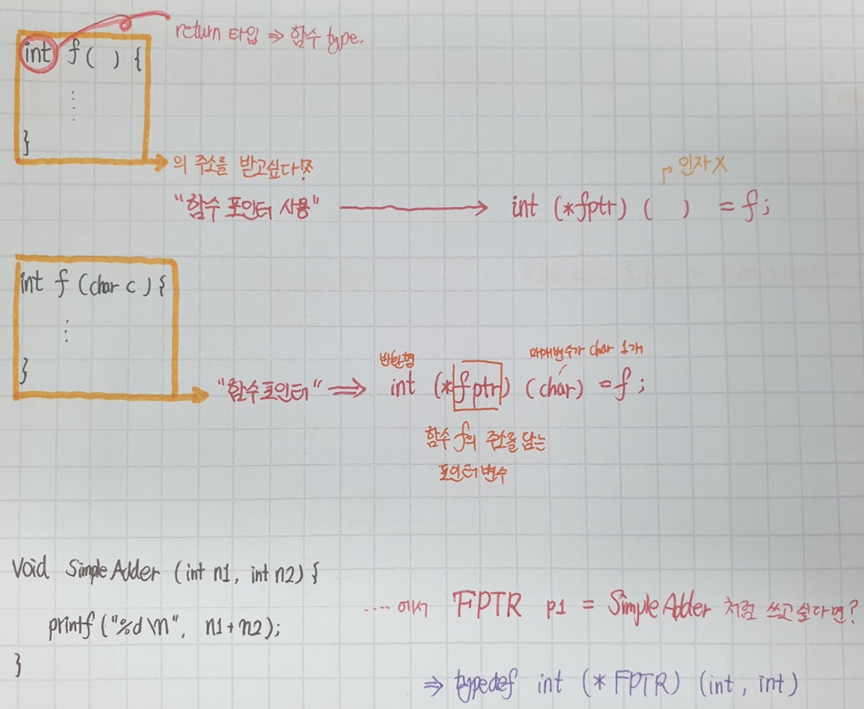 return 타입 ⇒ 함수 type.
int f( ) {
⋮
}
의 주소를 받고싶다?
인자 X
"함수 포인터 사용" → int (*fptr) ( ) = f;
int f (char c) {
⋮
}
반환형
매개변수가 char 1개
"함수포인터" ⇒ int (*fptr) (char) = f;
함수 f의 주소를 담는
포인터 변수
void SimpleAdder (int n1, int n2) {
printf("%d\n", n1+n2);
}
.... 에서 FPTR p1 = SimpleAdder 처럼 쓰고싶다면?
⇒ typedef int (*FPTR) (int, int)